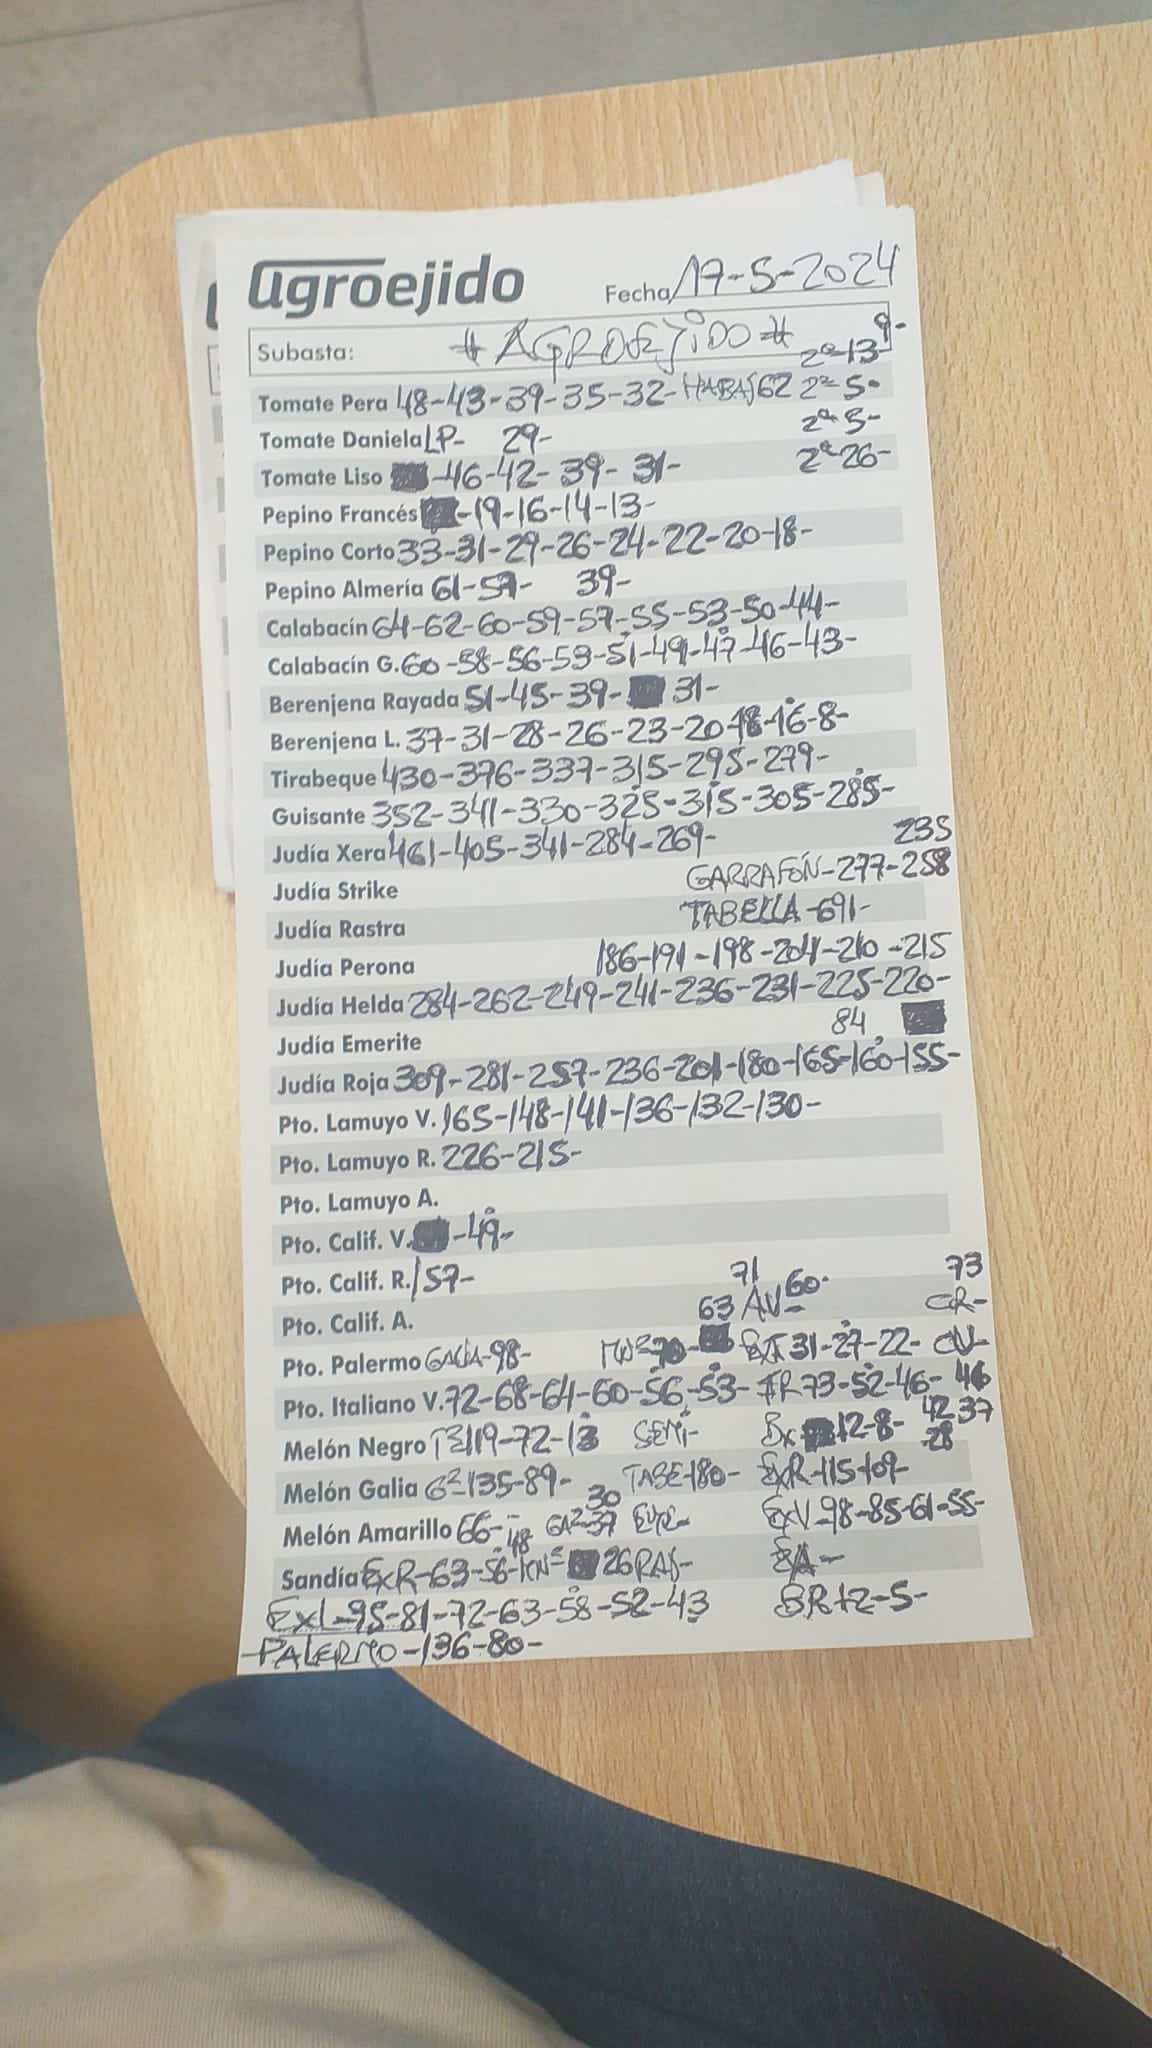 agroejido Fecha 17-5-2024
Subasta: #AGROEJIDO# 9-
2ª-13-
Tomate Pera 48-43-39-35-32-HABAS 62 2ª-5-
Tomate Daniela LP- 29- 2ª-5-
Tomate Liso -46-42-39-31- 2ª-26-
Pepino Francés -19-16-14-13-
Pepino Corto 33-31-29-26-24-22-20-18-
Pepino Almería 61-57- 39-
Calabacín 64-62-60-59-57-55-53-50-44-
Calabacín G. 60-58-56-53-51-49-47-46-43-
Berenjena Rayada 51-45-39- 31-
Berenjena L. 37-31-28-26-23-20-18-16-8-
Tirabeque 430-376-337-315-295-279-
Guisante 352-341-330-325-315-305-285-
Judía Xera 461-405-341-284-269- 235
Judía Strike GARRAFÓN-277-258
Judía Rastra TABELLA-691-
Judía Perona 186-191-198-204-210-215
Judía Helda 284-262-249-241-236-231-225-220-
Judía Emerite 84
Judía Roja 309-281-257-236-201-180-165-160-155-
Pto. Lamuyo V. 165-148-141-136-132-130-
Pto. Lamuyo R. 226-215-
Pto. Lamuyo A.
Pto. Calif. V. -49-
Pto. Calif. R. 157- 71 60- 73
Pto. Calif. A. 63 AV- CR-
Pto. Palermo GALIA-98- 70- 31-27-22- CV-
Pto. Italiano V. 72-68-64-60-56-53- FR 73-52-46- 46
Melón Negro 119-72-13 SEMI- Bx 12-8- 42 37
28
Melón Galia G2-135-89- TABE-180- ExR-115-109-
30
Melón Amarillo 66- 48 37 ExV-98-85-61-55-
Sandía ExR-63-56- 26 RAS-
ExL-95-81-72-63-58-52-43 BR 12-5-
-PALERMO-136-80-